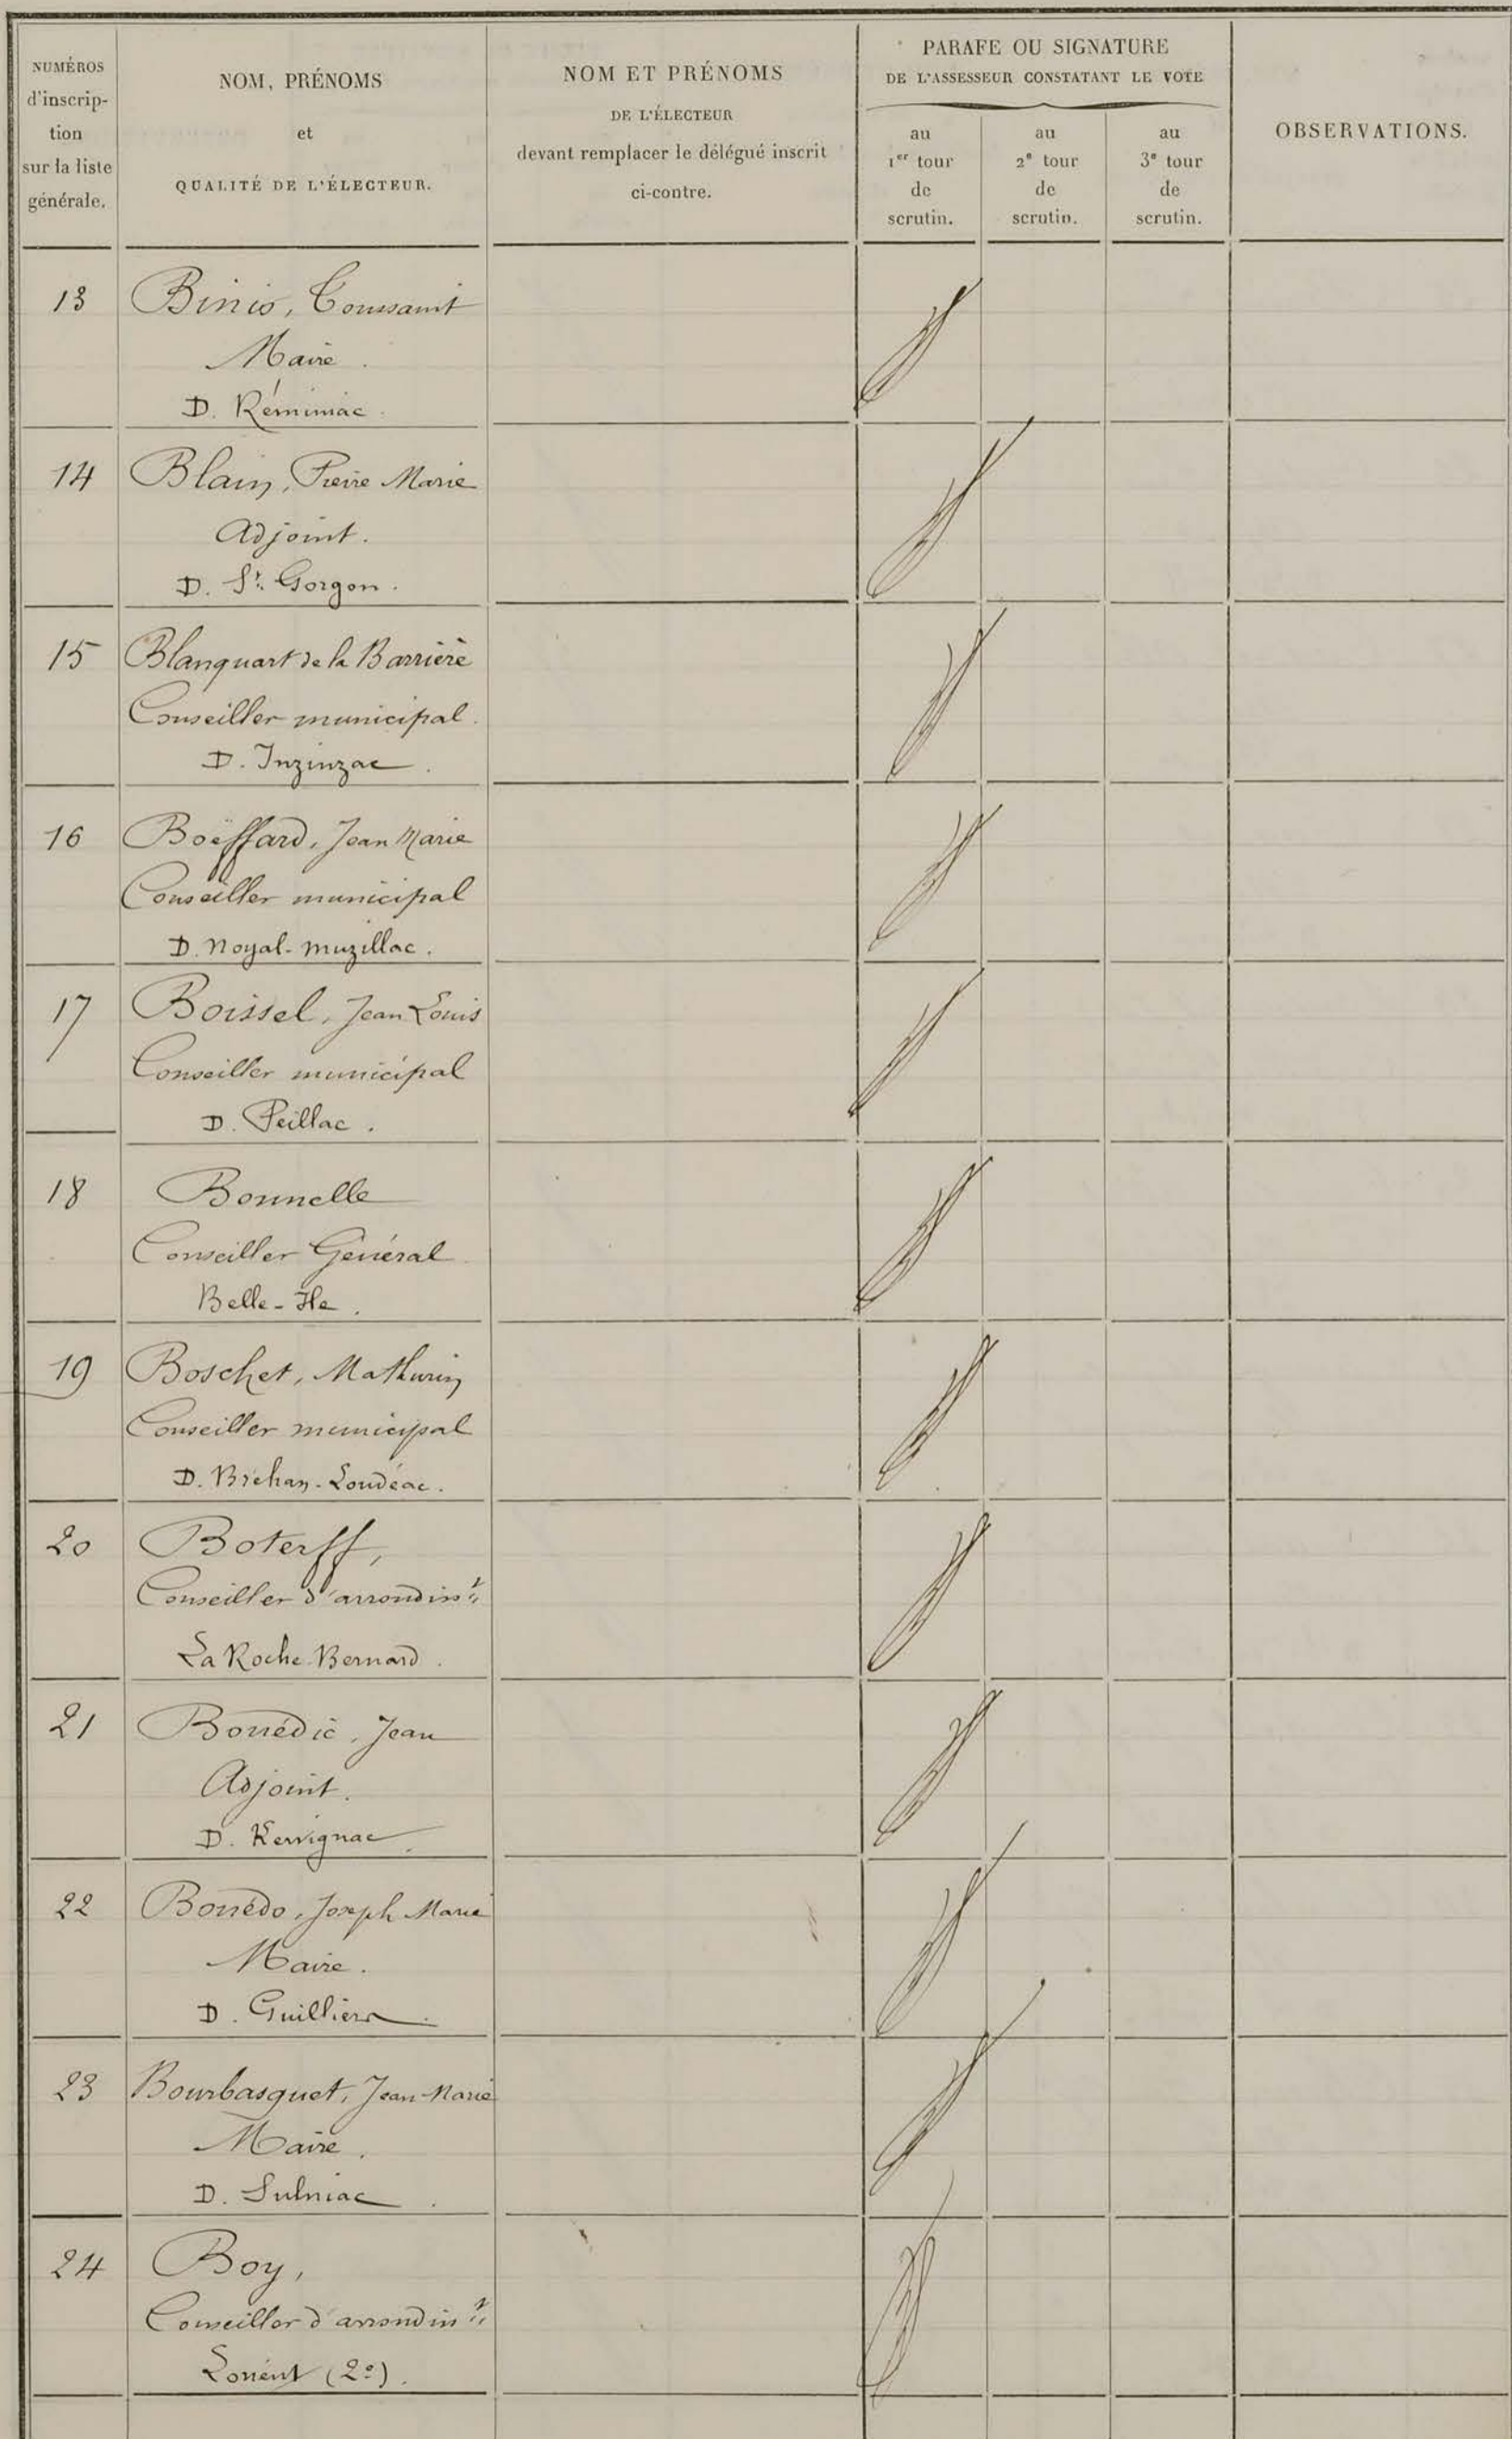 NUMÉROS
d'inscrip-
tion
sur la liste
générale.
NOM, PRÉNOMS
et
QUALITÉ DE L'ÉLECTEUR.
NOM ET PRÉNOMS
DE L'ÉLECTEUR
devant remplacer le délégué inscrit
ci-contre.
PARAFE OU SIGNATURE
DE L'ASSESSEUR CONSTATANT LE VOTE
au
1er tour
de
scrutin.
au
2e tour
de
scrutin.
au
3e tour
de
scrutin.
OBSERVATIONS.
13 Binio, Toussaint
Maire.
D. Réminiac.
14 Blain, Pierre Marie
Adjoint.
D. St. Gorgon.
15 Blanquart de la Barrière
Conseiller municipal.
D. Inzinzac.
16 Boëffard, Jean Marie
Conseiller municipal
D. Noyal-Muzillac.
17 Boissel, Jean Louis
Conseiller municipal
D. Peillac.
18 Bonnelle
Conseiller Général
Belle-Ile.
19 Boschet, Mathurin
Conseiller municipal
D. Bréhan-Loudéac.
20 Boterff,
Conseiller d'arrondisst
La Roche-Bernard.
21 Bouédic, Jean
Adjoint.
D. Kervignac.
22 Bouédo, Joseph Marie
Maire.
D. Guilliers.
23 Bourbasquet, Jean-Marie
Maire.
D. Sulniac.
24 Boy,
Conseiller d'arrondisst
Lorient (2e).